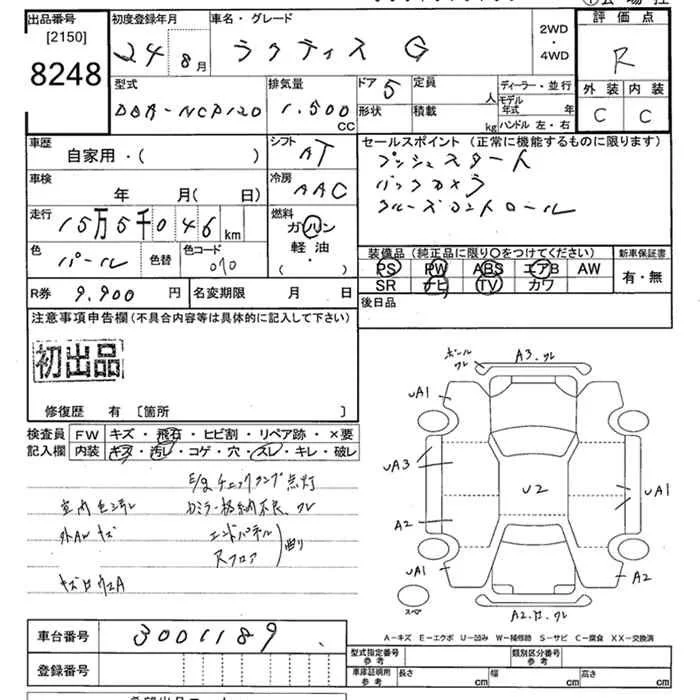 出品番号 初度登録年月 車名・グレード 2WD・4WD 評価点
[2150] 24 8月 ラクティス G R
8248 型式 排気量 ドア 5 定員 人 ディーラー・並行 外装 内装
DBA-NCP120 1.500 CC 形状 積載 kg モデル年式 年 C C
ハンドル 左・右
車歴 シフト AT セールスポイント (正常に機能するものに限ります)
自家用・( ) プッシュスタート
車検 冷房 バックカメラ
年 月(日) AAC クルーズコントロール
走行 15万5千046km 燃料
ガソリン
色 パール 色替 色コード 070 軽・油・( ) 装備品 (純正品に限り○をつけてください) 新車保証書
PS PW ABS エアB AW 有・無
R券 9.900円 名変期限 月 日 SR ナビ TV カワ
注意事項申告欄(不具合内容等は具体的に記入して下さい) 後日品
初出品
修復歴 有 [箇所 ]
検査員 FW キズ・飛石・ヒビ割・リペア跡・×要
記入欄 内装 キズ・汚レ・コゲ・穴・スレ・キレ・破レ
E/gチェックランプ点灯
室内センヨレ Cミラー格納不良、ワレ
外ALキズ エンドパネル
Rフロア 曲り
A3.ワレ
UA1
UA3
U2
UA1
A2
UA1
A2
スペア
A-キズ E-エクボ U-凹み W-補修跡 S-サビ C-腐食 XX-交換済
車台番号 3001189 型式指定番号 参考 類別区分番号 参考
登録番号 車庫証明用 参考 長さ cm 幅 cm 高さ cm